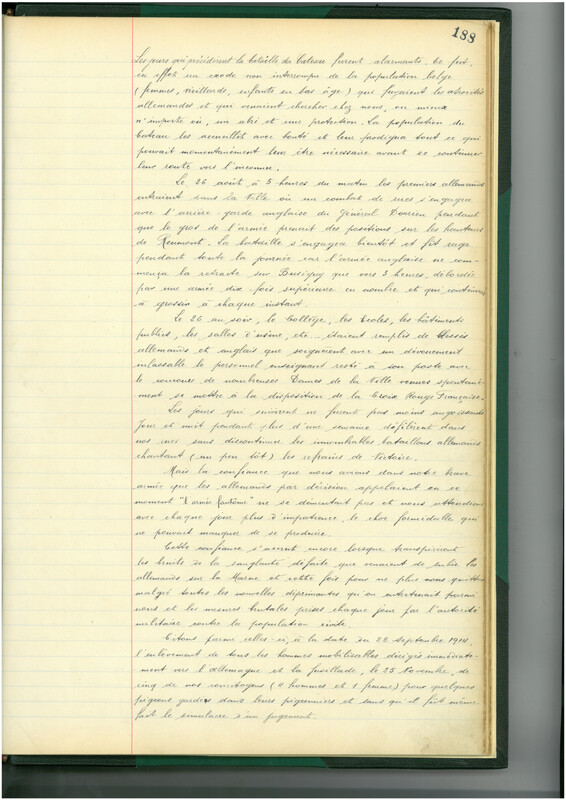 188
Les jours qui précédèrent la bataille du Cateau furent alarmants. Ce fut,
en effet un exode non interrompu de la population belge
(femmes, vieillards, enfants en bas âge) que fuyaient les atrocités
allemandes et qui venaient chercher chez nous, ou mieux
n'importe où, un abri et une protection. La population du
Cateau les accueillit avec bonté et leur prodigua tout ce qui
pouvait momentanément leur être nécessaire avant de continuer
leur route vers l'inconnu.
Le 26 août, à 5 heures du matin les premiers allemands
entraient dans la Ville où un combat de rues s'engagea
avec l'arrière-garde anglaise du Général Dorrien pendant
que le gros de l'armée prenait des positions sur les hauteurs
de Reumont. La bataille s'engagea bientôt et fit rage
pendant toute la journée car l'armée anglaise ne com-
mença la retraite sur Busigny que vers 3 heures, débordée
par une armée dix fois supérieure en nombre et qui continuait
à grossir à chaque instant.
Le 26 au soir, le Collège, les Ecoles, les bâtiments
publics, les salles d'usine, etc... étaient remplis de blessés
allemands et anglais que soignèrent avec un dévouement
inlassable le personnel enseignant resté à son poste avec
le concours de nombreuses Dames de la Ville venues spontané-
ment se mettre à la disposition de la Croix Rouge Française.
Les jours qui suivirent ne furent pas moins angoissants
Jour et nuit pendant plus d'une semaine défilèrent dans
nos rues sans discontinuer les innombrables bataillons allemands
chantant (un peu tôt) les refrains de Victoire.
Mais la confiance que nous avions dans notre brave
armée que les allemands par dérision appelaient en ce
moment "L'armée fantôme" ne se démentait pas et nous attendions
avec chaque jour plus d'impatience, le choc formidable qui
ne pouvait manquer de se produire.
Cette confiance s'accrut encore lorsque transpirèrent
les bruits de la sanglante défaite que venaient de subir les
allemands sur la Marne et cette fois pour ne plus nous quitter
malgré toutes les nouvelles déprimantes qu'on entretenait parmi
nous et les mesures brutales prises chaque jour par l'autorité
militaire contre la population civile.
Citons parmi celles-ci, à la date du 22 Septembre 1914,
l'enlèvement de tous les hommes mobilisables dirigés immédiate-
ment vers l'allemagne et la fusillade, le 25 Novembre, de
cinq de nos concitoyens (4 hommes et 1 femme) pour quelques
pigeons gardés dans leurs pigeonniers et sans qu'il fût même
fait le simulacre d'un jugement.